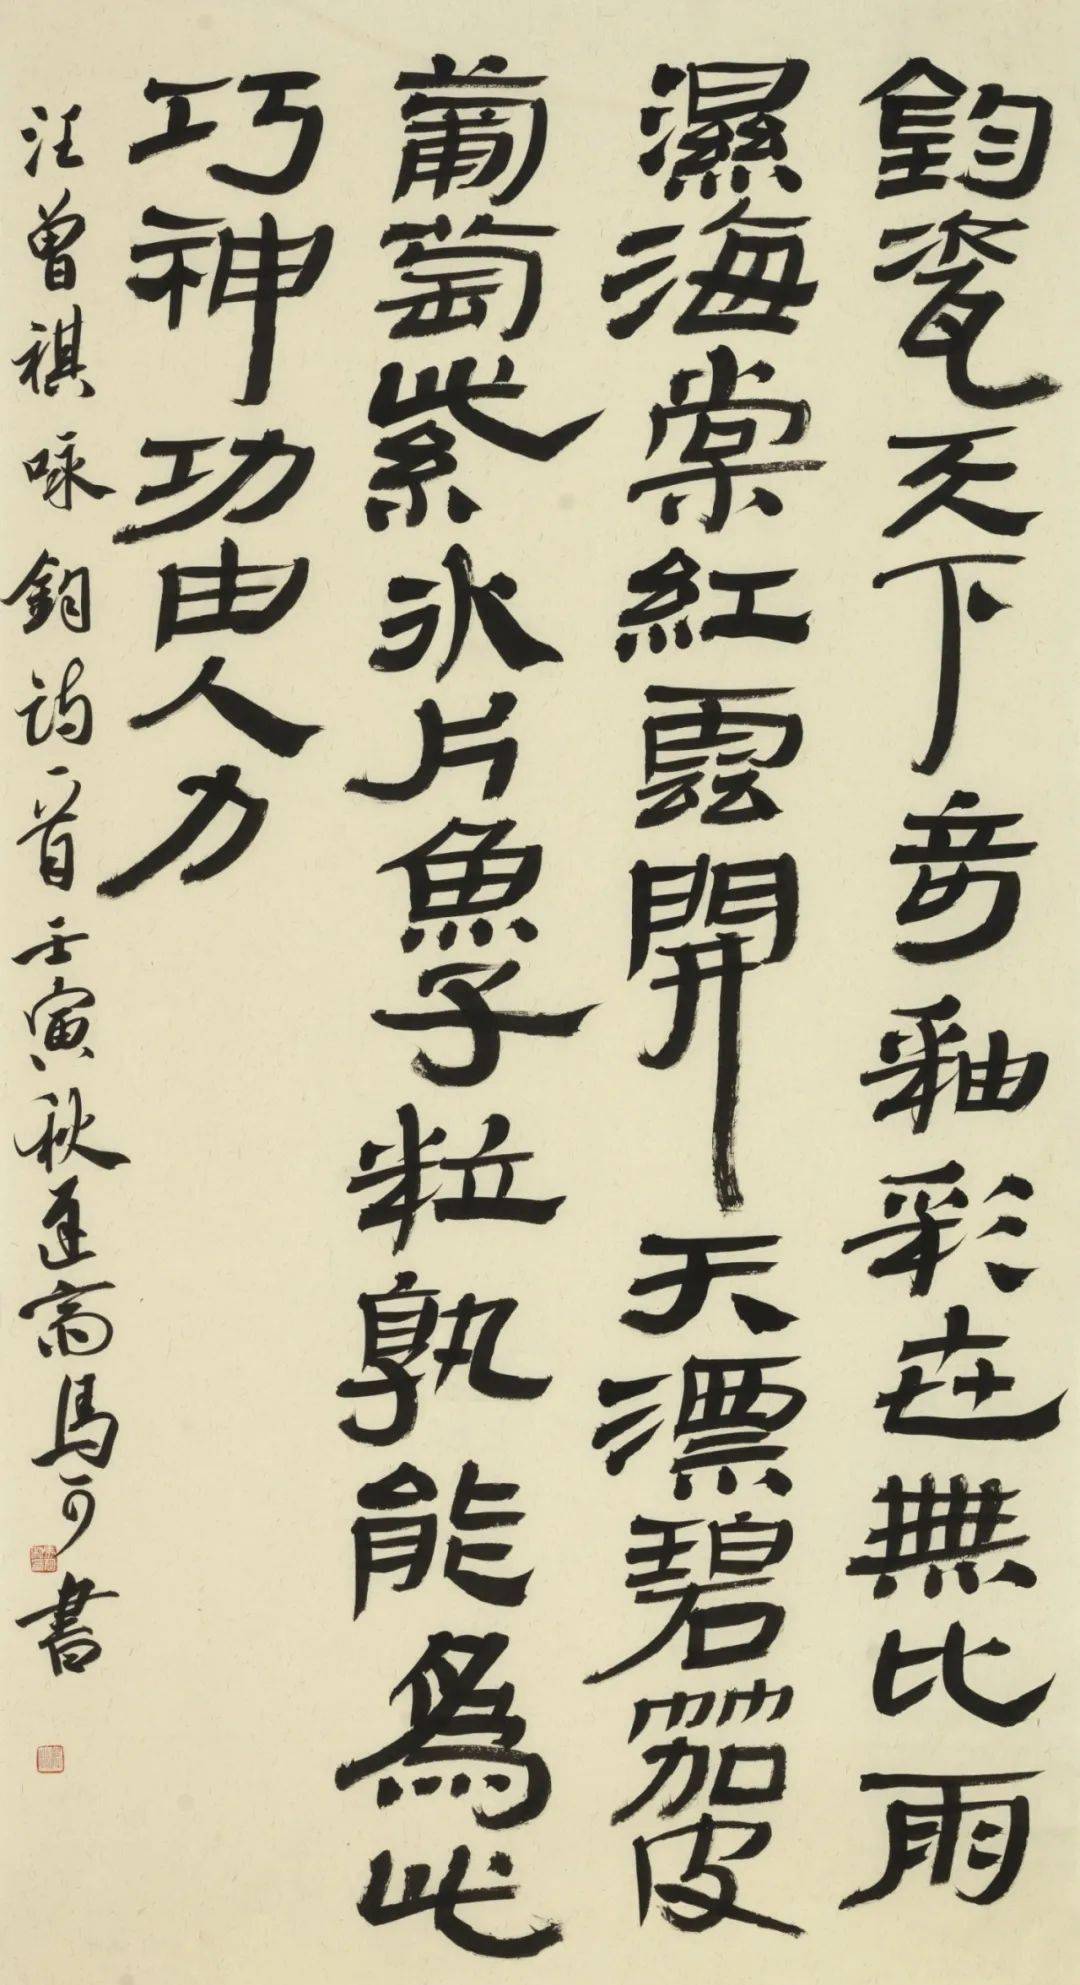 鈞瓷天下奇釉彩世無比雨
濕海棠紅雲開天漂碧笳皮
葡萄紫冰片魚子粒孰能為此
巧神功由人力
汪曾祺咏鈞詩一首壬寅秋蓬齋馬可書